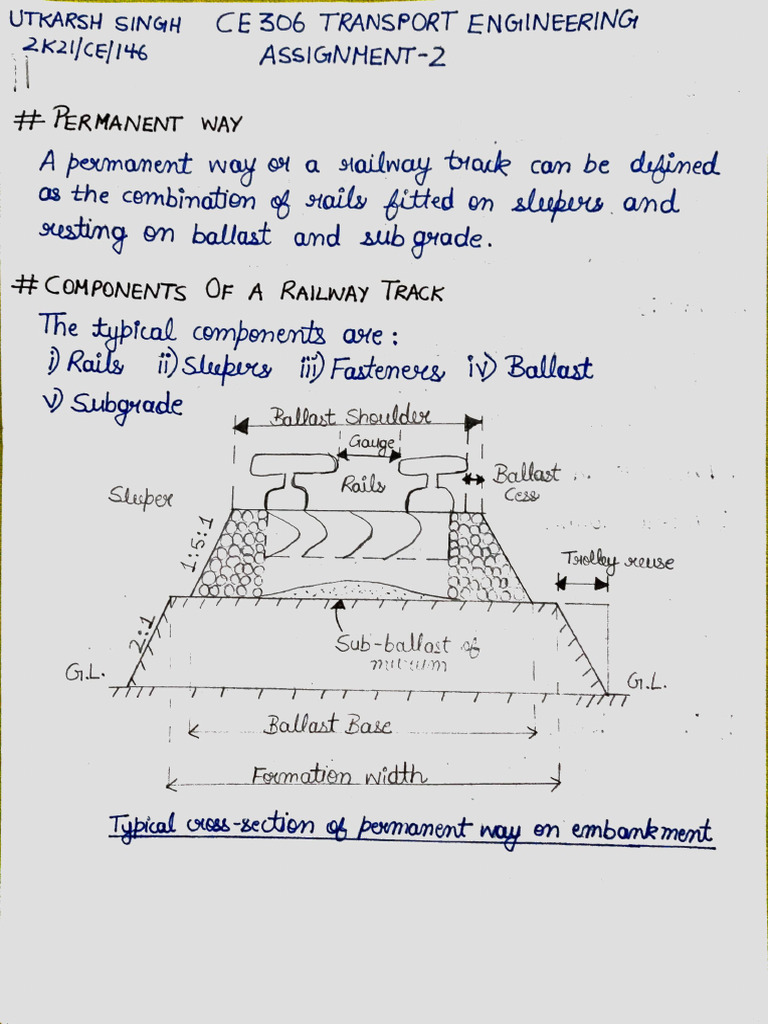 UTKARSH SINGH CE 306 TRANSPORT ENGINEERING
2K21/CE/146 ASSIGNMENT-2
# PERMANENT WAY
A permanent way or a railway track can be defined
as the combination of rails fitted on sleepers and
resting on ballast and subgrade.
# COMPONENTS OF A RAILWAY TRACK
The typical components are:
i) Rails ii) Sleepers iii) Fasteners iv) Ballast
v) Subgrade
Ballast Shoulder
Gauge
Rails
Ballast
Cess
Sleeper
1:5:1
Trolley reuse
2:1
Sub-ballast of
G.L.
G.L.
Ballast Base
Formation width
Typical cross-section of permanent way on embankment